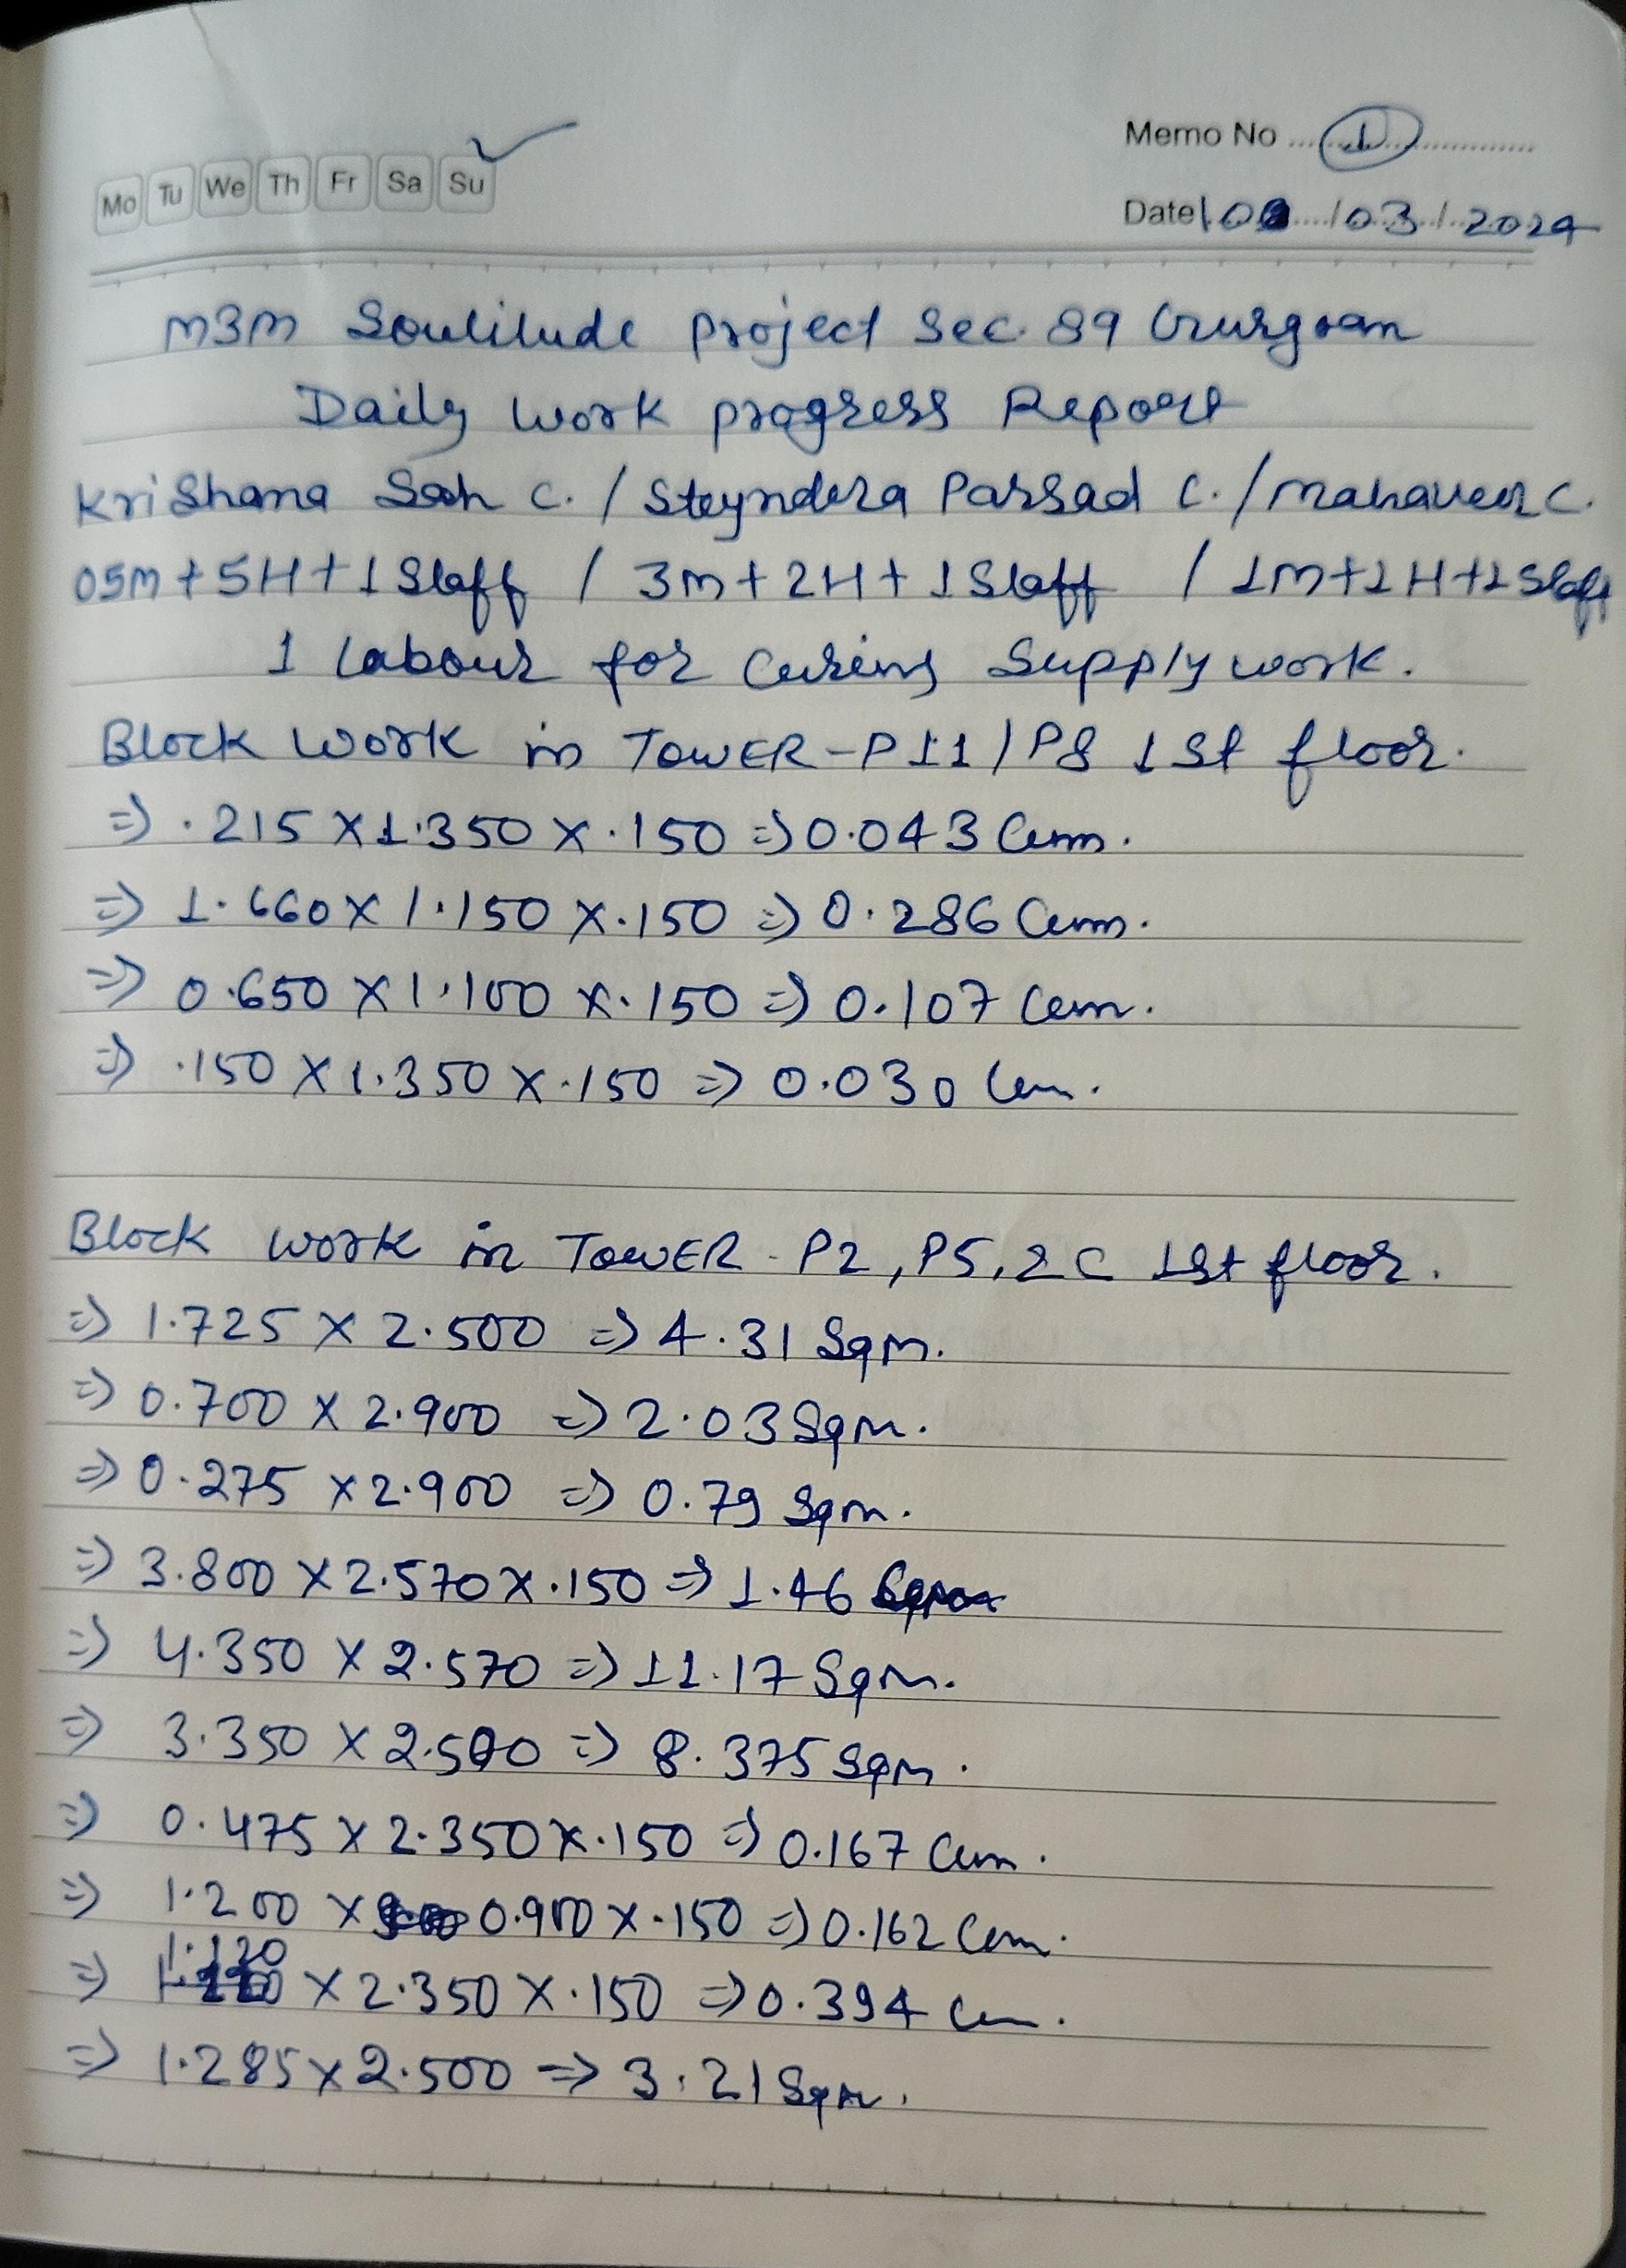 Memo No 1
Mo Tu We Th Fr Sa Su
Date /03/2024
M3M Soulilude project Sec. 89 Gurgoam
Daily work progress Report
Krishana Sah C. / Steyndera Parsad C. / Mahaveer C.
05M + 5H + 1 Staff / 3M + 2H + 1 Staff / 1M + 1H + 1 Staff
1 labour for Curing Supply work.
Block work in TOWER - P11/P8 1st floor.
=> .215 X 1.350 X .150 => 0.043 Cum.
=> 1.660 X 1.150 X .150 => 0.286 Cum.
=> 0.650 X 1.100 X .150 => 0.107 Cum.
=> .150 X 1.350 X .150 => 0.030 Cum.
Block work in TOWER - P2, P5, 2C 1st floor.
=> 1.725 X 2.500 => 4.31 Sqm.
=> 0.700 X 2.900 => 2.03 Sqm.
=> 0.275 X 2.900 => 0.79 Sqm.
=> 3.800 X 2.570 X .150 => 1.46
=> 4.350 X 2.570 => 11.17 Sqm.
=> 3.350 X 2.500 => 8.375 Sqm.
=> 0.475 X 2.350 X .150 => 0.167 Cum.
=> 1.200 X 0.900 X .150 => 0.162 Cum.
=> 1.120 X 2.350 X .150 => 0.394 Cum.
=> 1.285 X 2.500 => 3.21 Sqm.